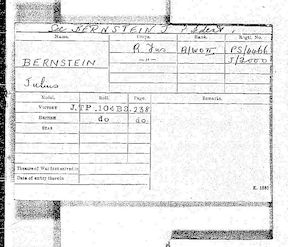 BERNSTEIN J
Name. Corps. Rank. Regtl. No.
BERNSTEIN R. Fus A/WOII. PS/6466
Julius —"— J/2000
Medal. Roll. Page. Remarks.
VICTORY J.TP.104B2.238
BRITISH do do.
STAR
Theatre of War first served in
Date of entry therein
K. 1380